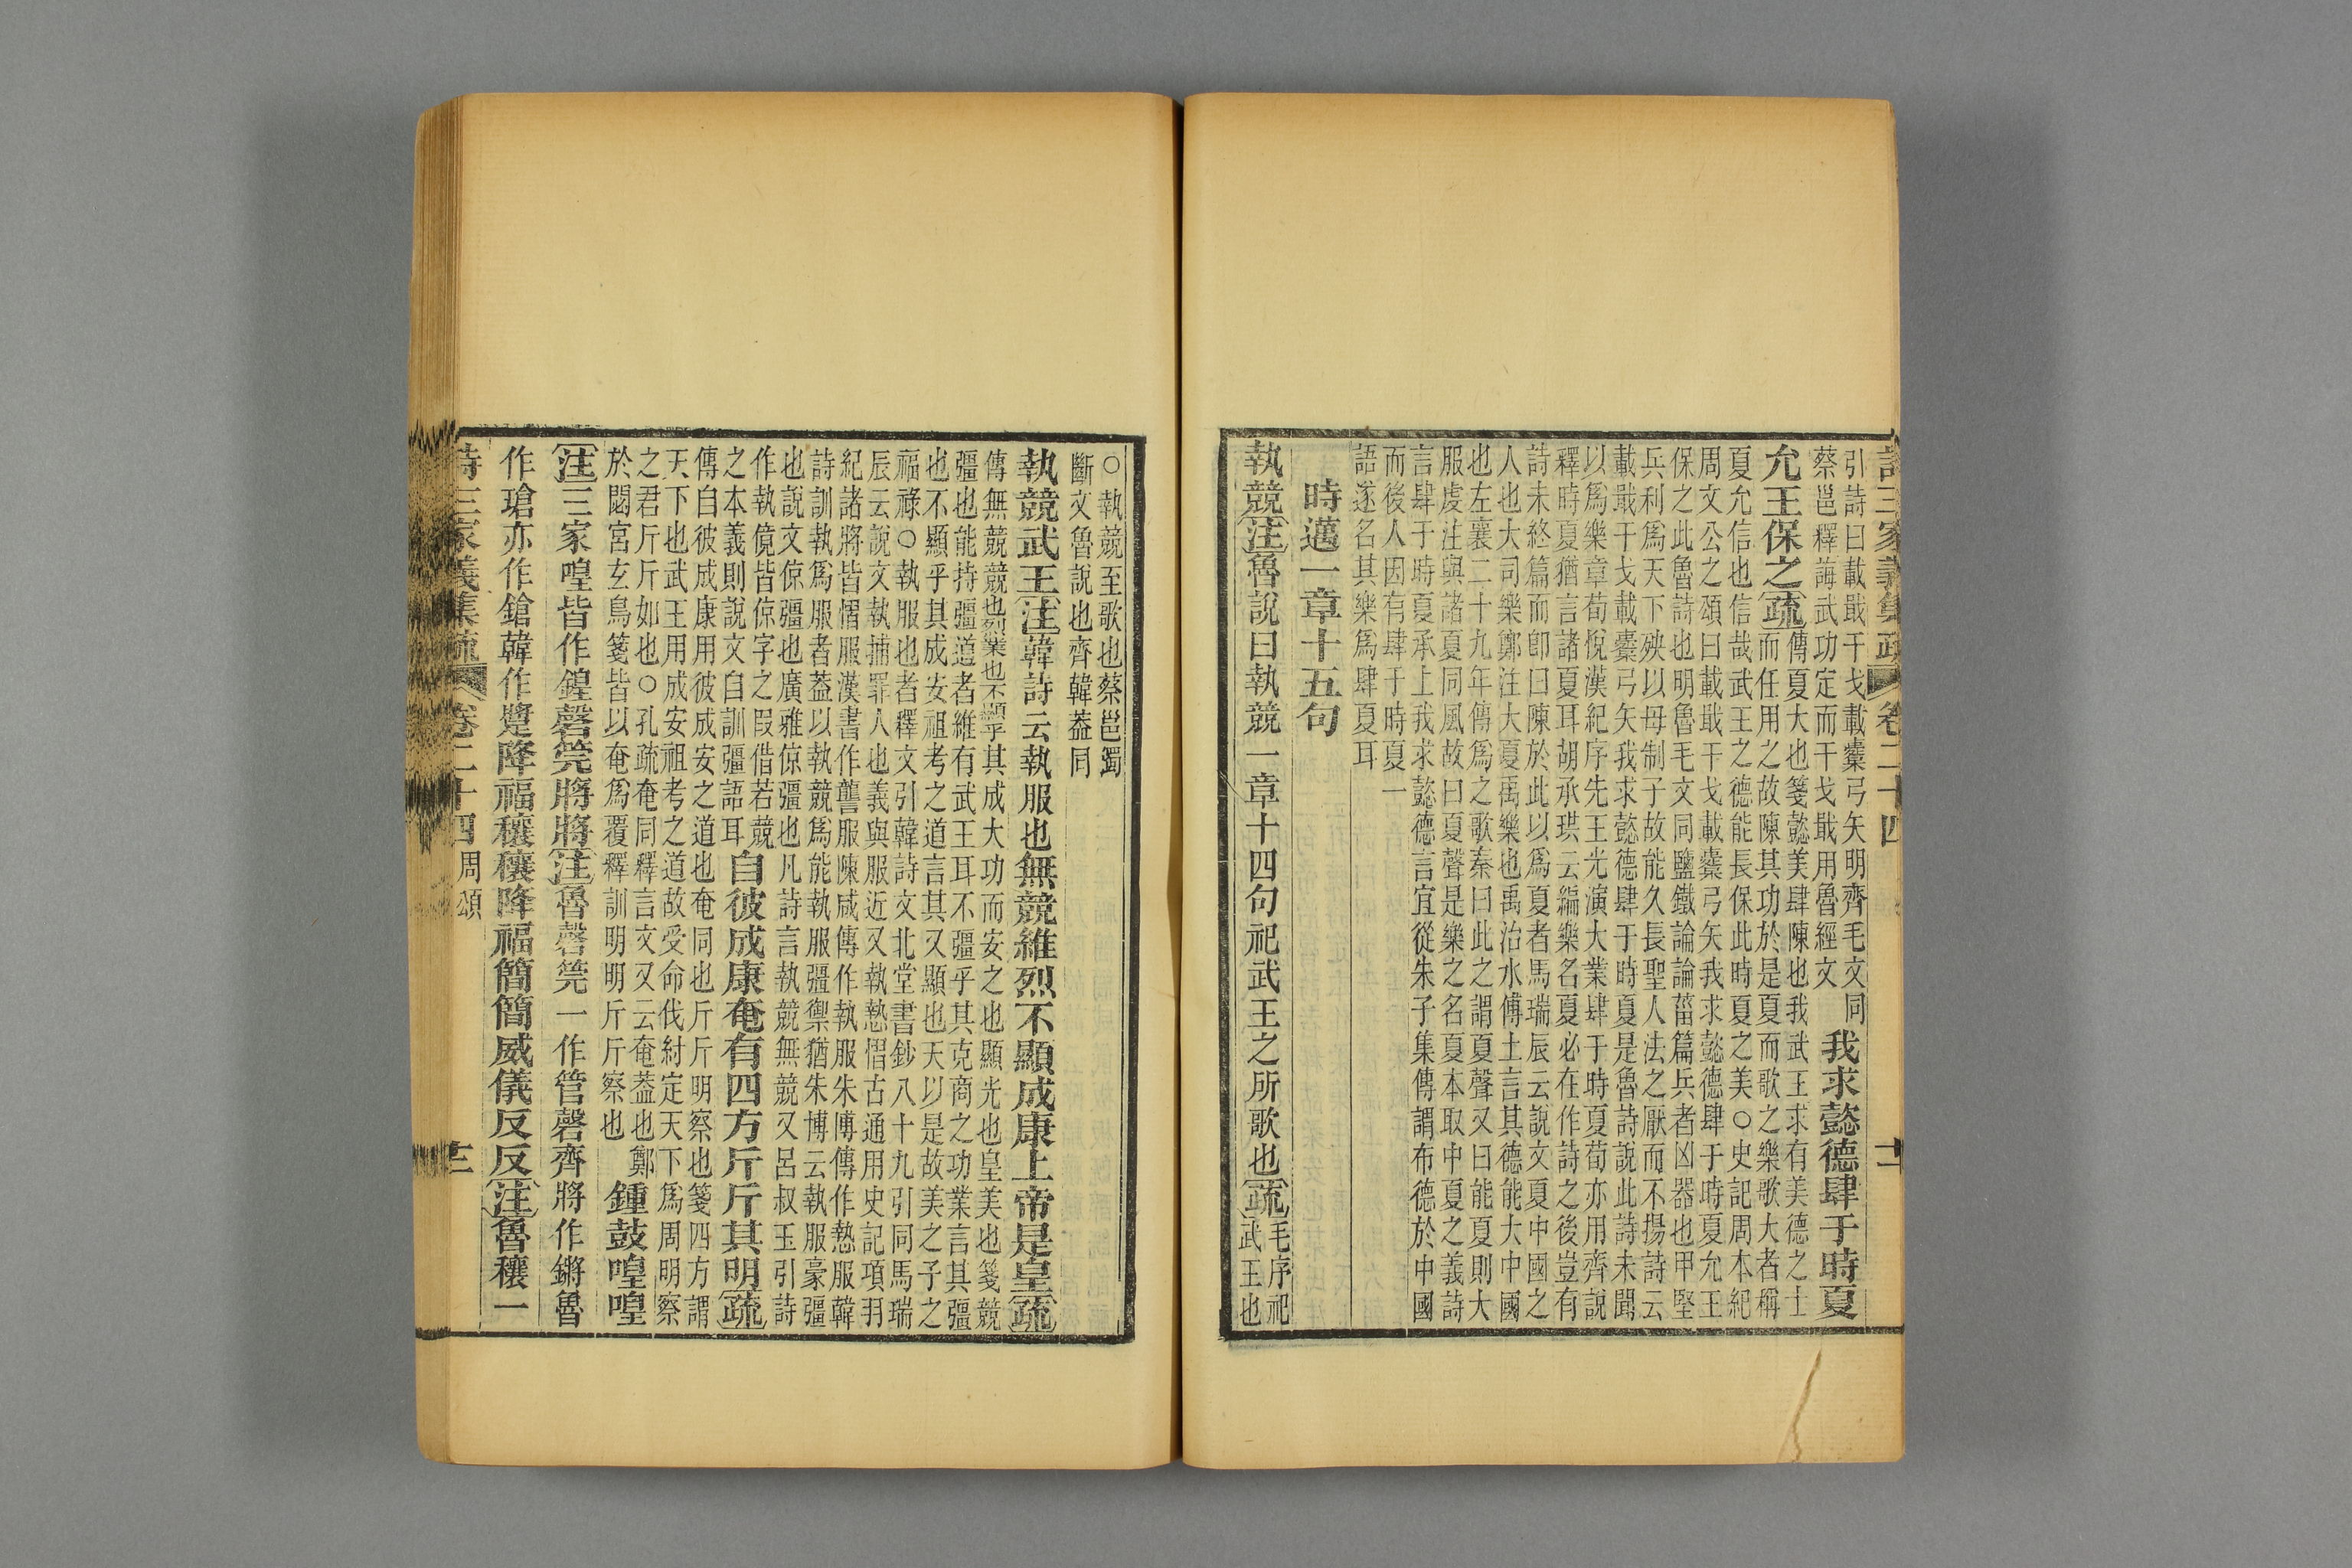 詩三家義集疏 卷二十四 十二
引詩曰載戢干戈載櫜弓矢明齊毛文同
蔡邕釋誨武功定而干戈戢用魯經文
我求懿德肆于時夏
允王保之疏
傳夏大也箋懿美肆陳也我武王求有美德之士
而任用之故陳其功於是夏而歌之樂歌大者稱
夏允信也信哉武王之德能長保此時夏之美○史記周本紀
周文公之頌曰載戢干戈載櫜弓矢我求懿德肆于時夏允王
保之此魯詩也明魯毛文同鹽鐵論論菑篇兵者凶器也甲堅
兵利為天下殃以母制子故能久長聖人法之厭而不揚詩云
載戢干戈載櫜弓矢我求懿德肆于時夏是魯詩說此詩未聞
以為樂章荀悅漢紀序先王光演大業肆于時夏荀亦用齊說
釋時夏猶言諸夏耳胡承珙云編樂名夏必在作詩之後豈有
詩未終篇而卽曰陳於此以為夏者馬瑞辰云說文夏中國之
人也大司樂鄭注大夏禹樂也禹治水傅土言其德能大中國
也左襄二十九年傳為之歌秦曰此之謂夏聲又曰能夏則大
服虔注與諸夏同風故曰夏聲是樂之名夏本取中夏之義詩
言肆于時夏承上我求懿德言宜從朱子集傳謂布德於中國
而後人因有肆于時夏一
語遂名其樂為肆夏耳
時邁一章十五句
執競注魯說曰執競一章十四句祀武王之所歌也疏
毛序祀
武王也
○執競至歌也蔡邕獨
斷文魯說也齊韓葢同
執競武王注韓詩云執服也無競維烈不顯成康上帝是皇疏
傳無競競也烈業也不顯乎其成大功而安之也顯光也皇美也箋競
彊也能持彊道者維有武王耳不彊乎其克商之功業言其彊
也不顯乎其成安祖考之道言其又顯也天以是故美之子之
福祿○執服也者釋文引韓詩文北堂書鈔八十九引同馬瑞
辰云說文執捕罪人也義與服近又執慹慴古通用史記項羽
紀諸將皆慴服漢書作讋服陳咸傳作執服朱博傳作慹服韓
詩訓執為服者葢以執競為能執服彊禦猶朱博云執服豪彊
也說文倞彊也廣雅倞彊也凡詩言執競無競又呂叔玉引詩
作執傹皆倞字之叚借若競
之本義則說文自訓彊語耳
自彼成康奄有四方斤斤其明疏
傳自彼成康用彼成安之道也奄同也斤斤明察也箋四方謂
天下也武王用成安祖考之道故受命伐紂定天下為周明察
之君斤斤如也○孔疏奄同釋言文又云奄葢也鄭
於閟宮玄鳥箋皆以奄為覆釋訓明明斤斤察也
鍾鼓喤喤
注三家喤皆作鍠磬筦將將注魯磬筦一作管磬齊將作鏘魯
作瑲亦作鎗韓作躟降福穰穰降福簡簡威儀反反注魯穰一
詩三家義集疏 卷二十四 周頌